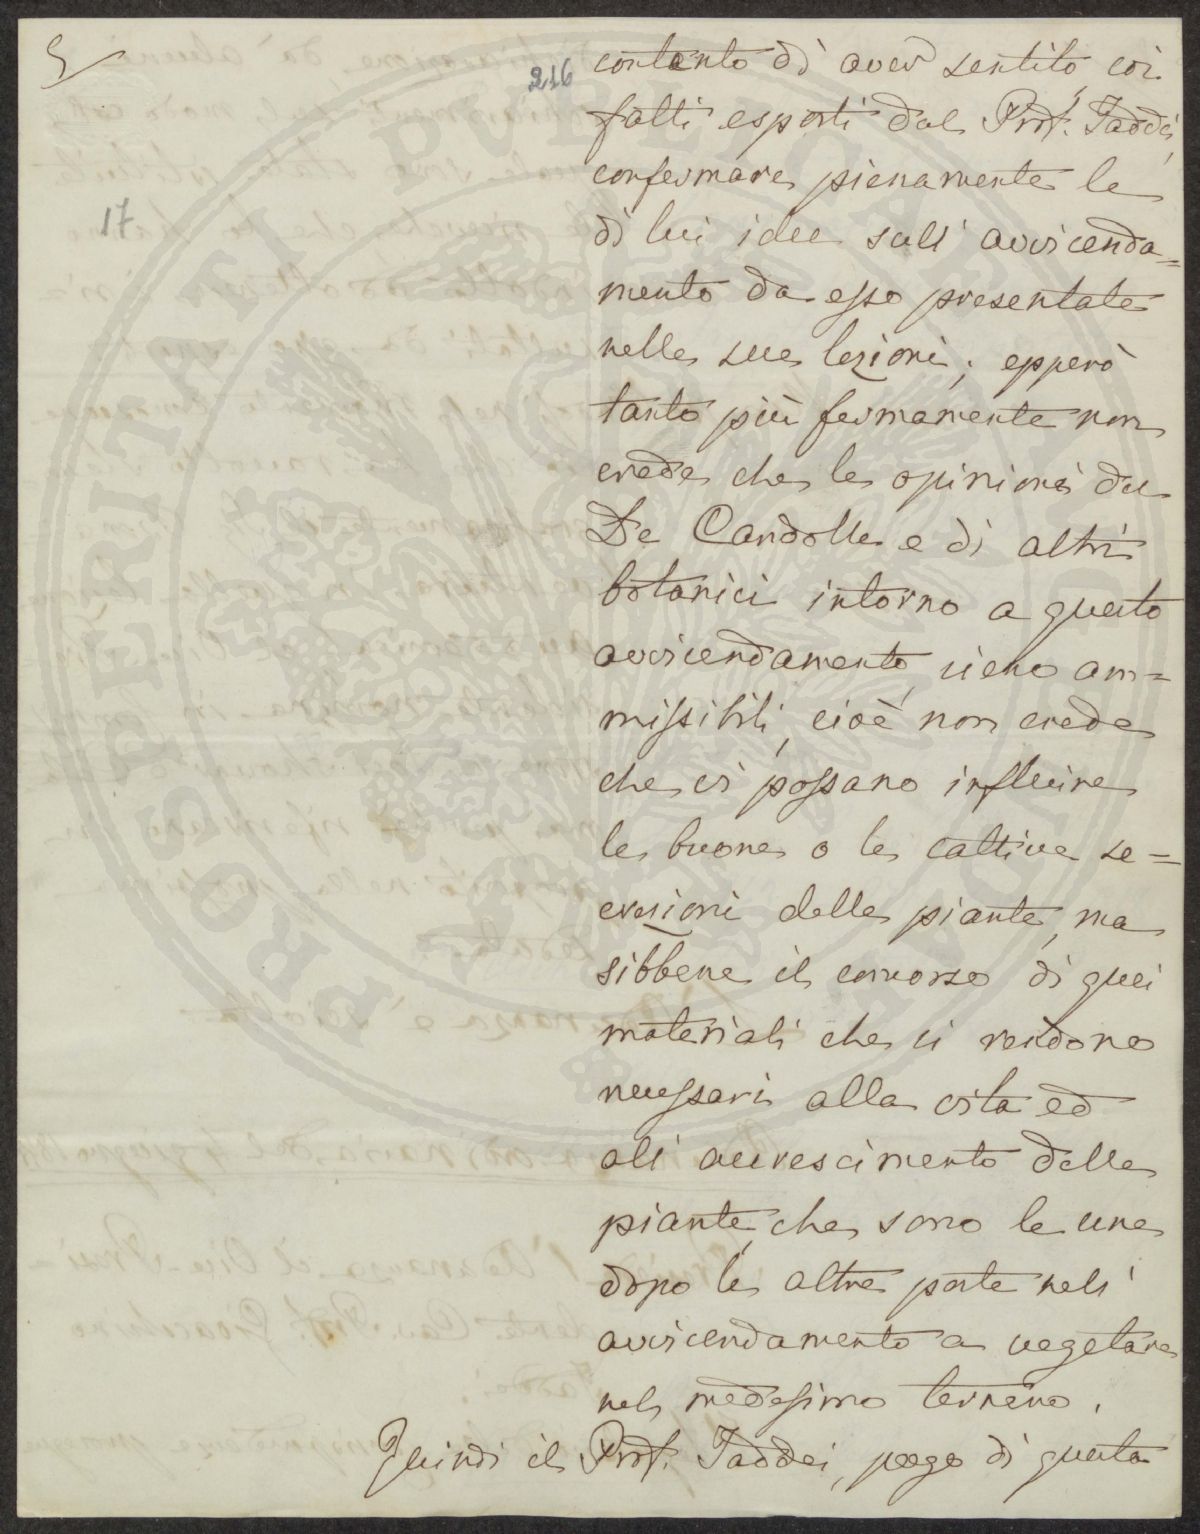 5
216
17
contento di aver sentito coi
fatti esposti dal Prof. Taddei,
confermare pienamente le
di lui idee sull'avvicenda=
mento da esso presentate
nelle sue lezioni; epperò
tanto più fermamente non
crede che le opinioni du
De Candolle e di altri
botanici intorno a questo
avvicendamento sieno am=
missibili, cioè non crede
che vi possano influire
le buone o le cattive se=
crezioni delle piante, ma
sibbene il concorso di quei
materiali che si rendono
necessari alla vita ed
all'accrescimento delle
piante, che sono le une
dopo le altre poste nell'
avvicendamento a vegetare
nel medesimo terreno.
Quindi il Prof. Taddei, pago di questa
PROSPERITATI PUBLICAE AUGENDAE